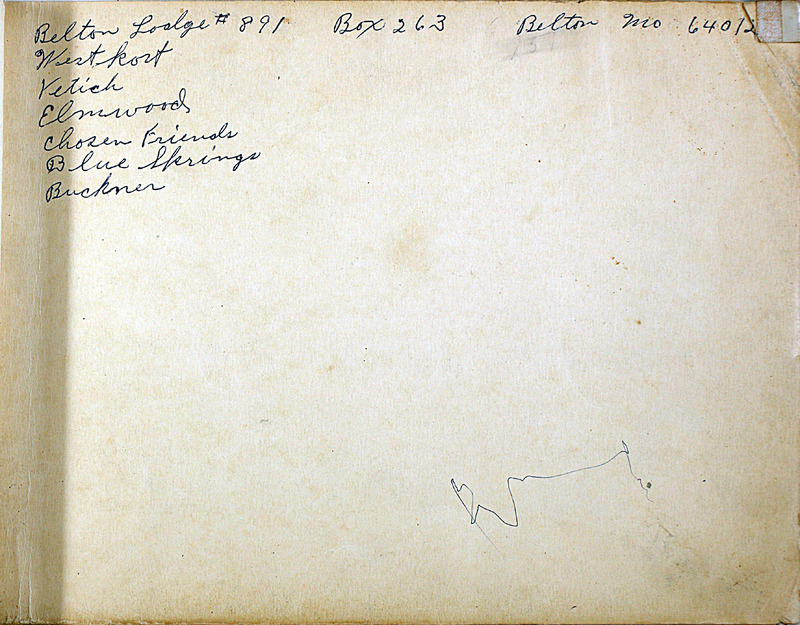 Belton Lodge # 891 Box 263 Belton Mo 64012
Westport
Vetich
Elmwood
Chosen Friends
Blue Springs
Buckner